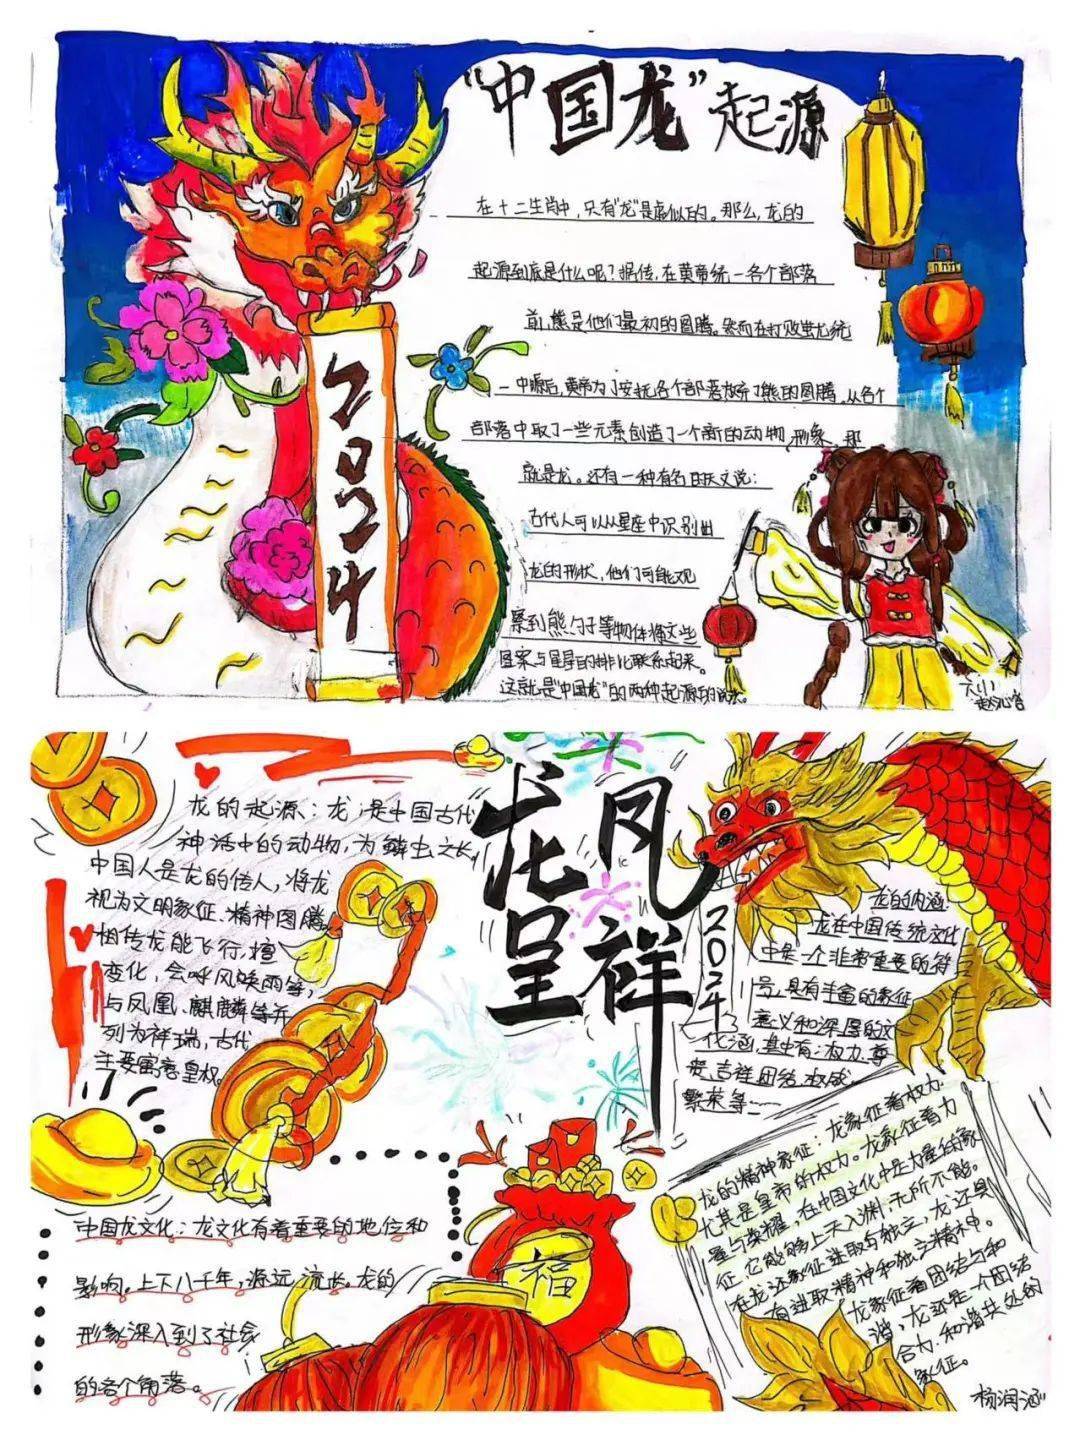 “中国龙”起源
在十二生肖中，只有“龙”是虚似的。那么，龙的
起源到底是什么呢？据传，在黄帝统一各个部落
前，熊是他们最初的图腾。然而在打败蚩尤统
一中原后，黄帝为了安抚各个部落放弃了熊的图腾。从各个
部落中取了一些元素创造了一个新的动物形象，那
就是龙。还有一种有名的天文说：
古代人可以从星座中识别出
龙的形状，他们可能观
察到熊、勺子等物体将这些
图案与星星的排化联系起来。
这就是“中国龙”的两种起源的说法。
2024
龙凤
呈祥
2024
龙的起源：龙是中国古代
神话中的动物，为鳞虫之长，
中国人是龙的传人，将龙
视为文明象征、精神图腾。
相传龙能飞行，擅
变化，会呼风唤雨等，
与凤凰、麒麟等并
列为祥瑞，古代
主要寓意皇权。
龙的内涵：
龙在中国传统文化
中是一个非常重要的符
号，具有丰富的象征
意义和深厚的文
化涵，其中有：权力、尊
贵、吉祥、团结、权威、
繁荣等——
中国龙文化：龙文化有着重要的地位和
影响。上下八千年，源远流长。龙的
形象深入到了社会
的各个角落。
福
龙的精神象征：龙象征着权力
尤其是皇帝的权力。龙象征着力
量与荣耀，在中国文化中是力量的象
征，它能够上天入渊，无所不能。
在龙还象征进取与独立，龙还具
有进取精神和独立精神。
龙象征着团结与和
谐，龙还是一个团结
合力、和谐共处的
象征。
杨润涵